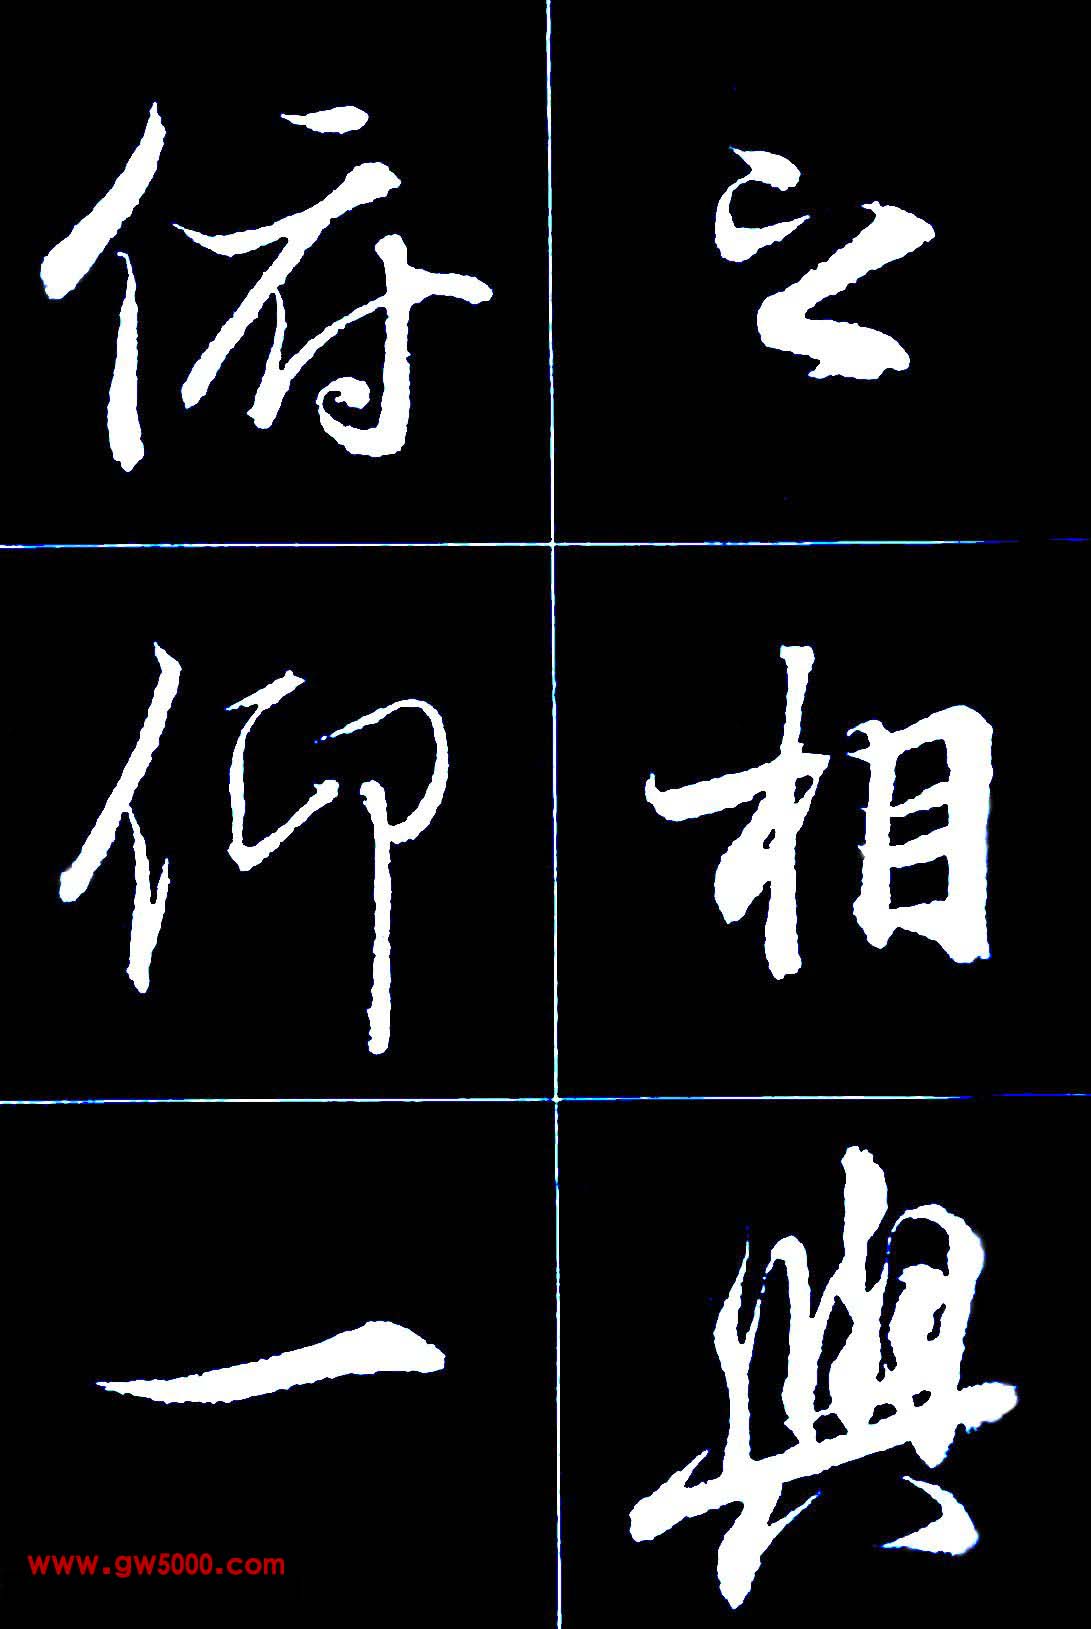 之相與
俯仰一
www.gw5000.com